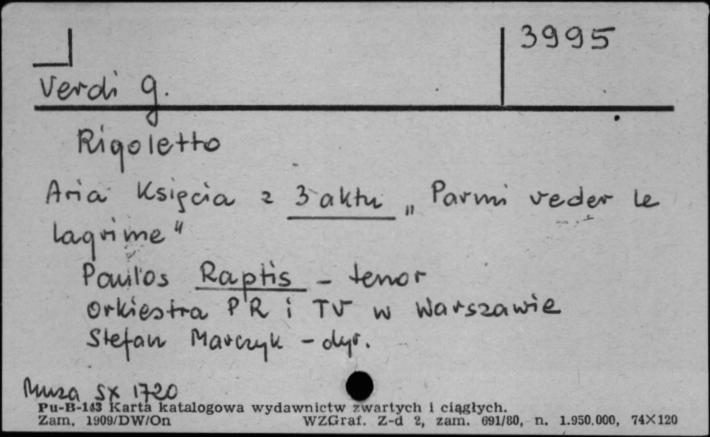 3995
Verdi G.
Rigoletto
Aria Księcia z 3 aktu „Parmi veder le
lagrime"
Paulos Raptis - tenor
Orkiestra PR i TV w Warszawie
Stefan Marczyk - dyr.
Muza SX 1720
Pu-B-143 Karta katalogowa wydawnictw zwartych i ciągłych.
Zam. 1909/DW/On WZGraf. Z-d 2, zam. 691/80, n. 1.950.000, 74×120